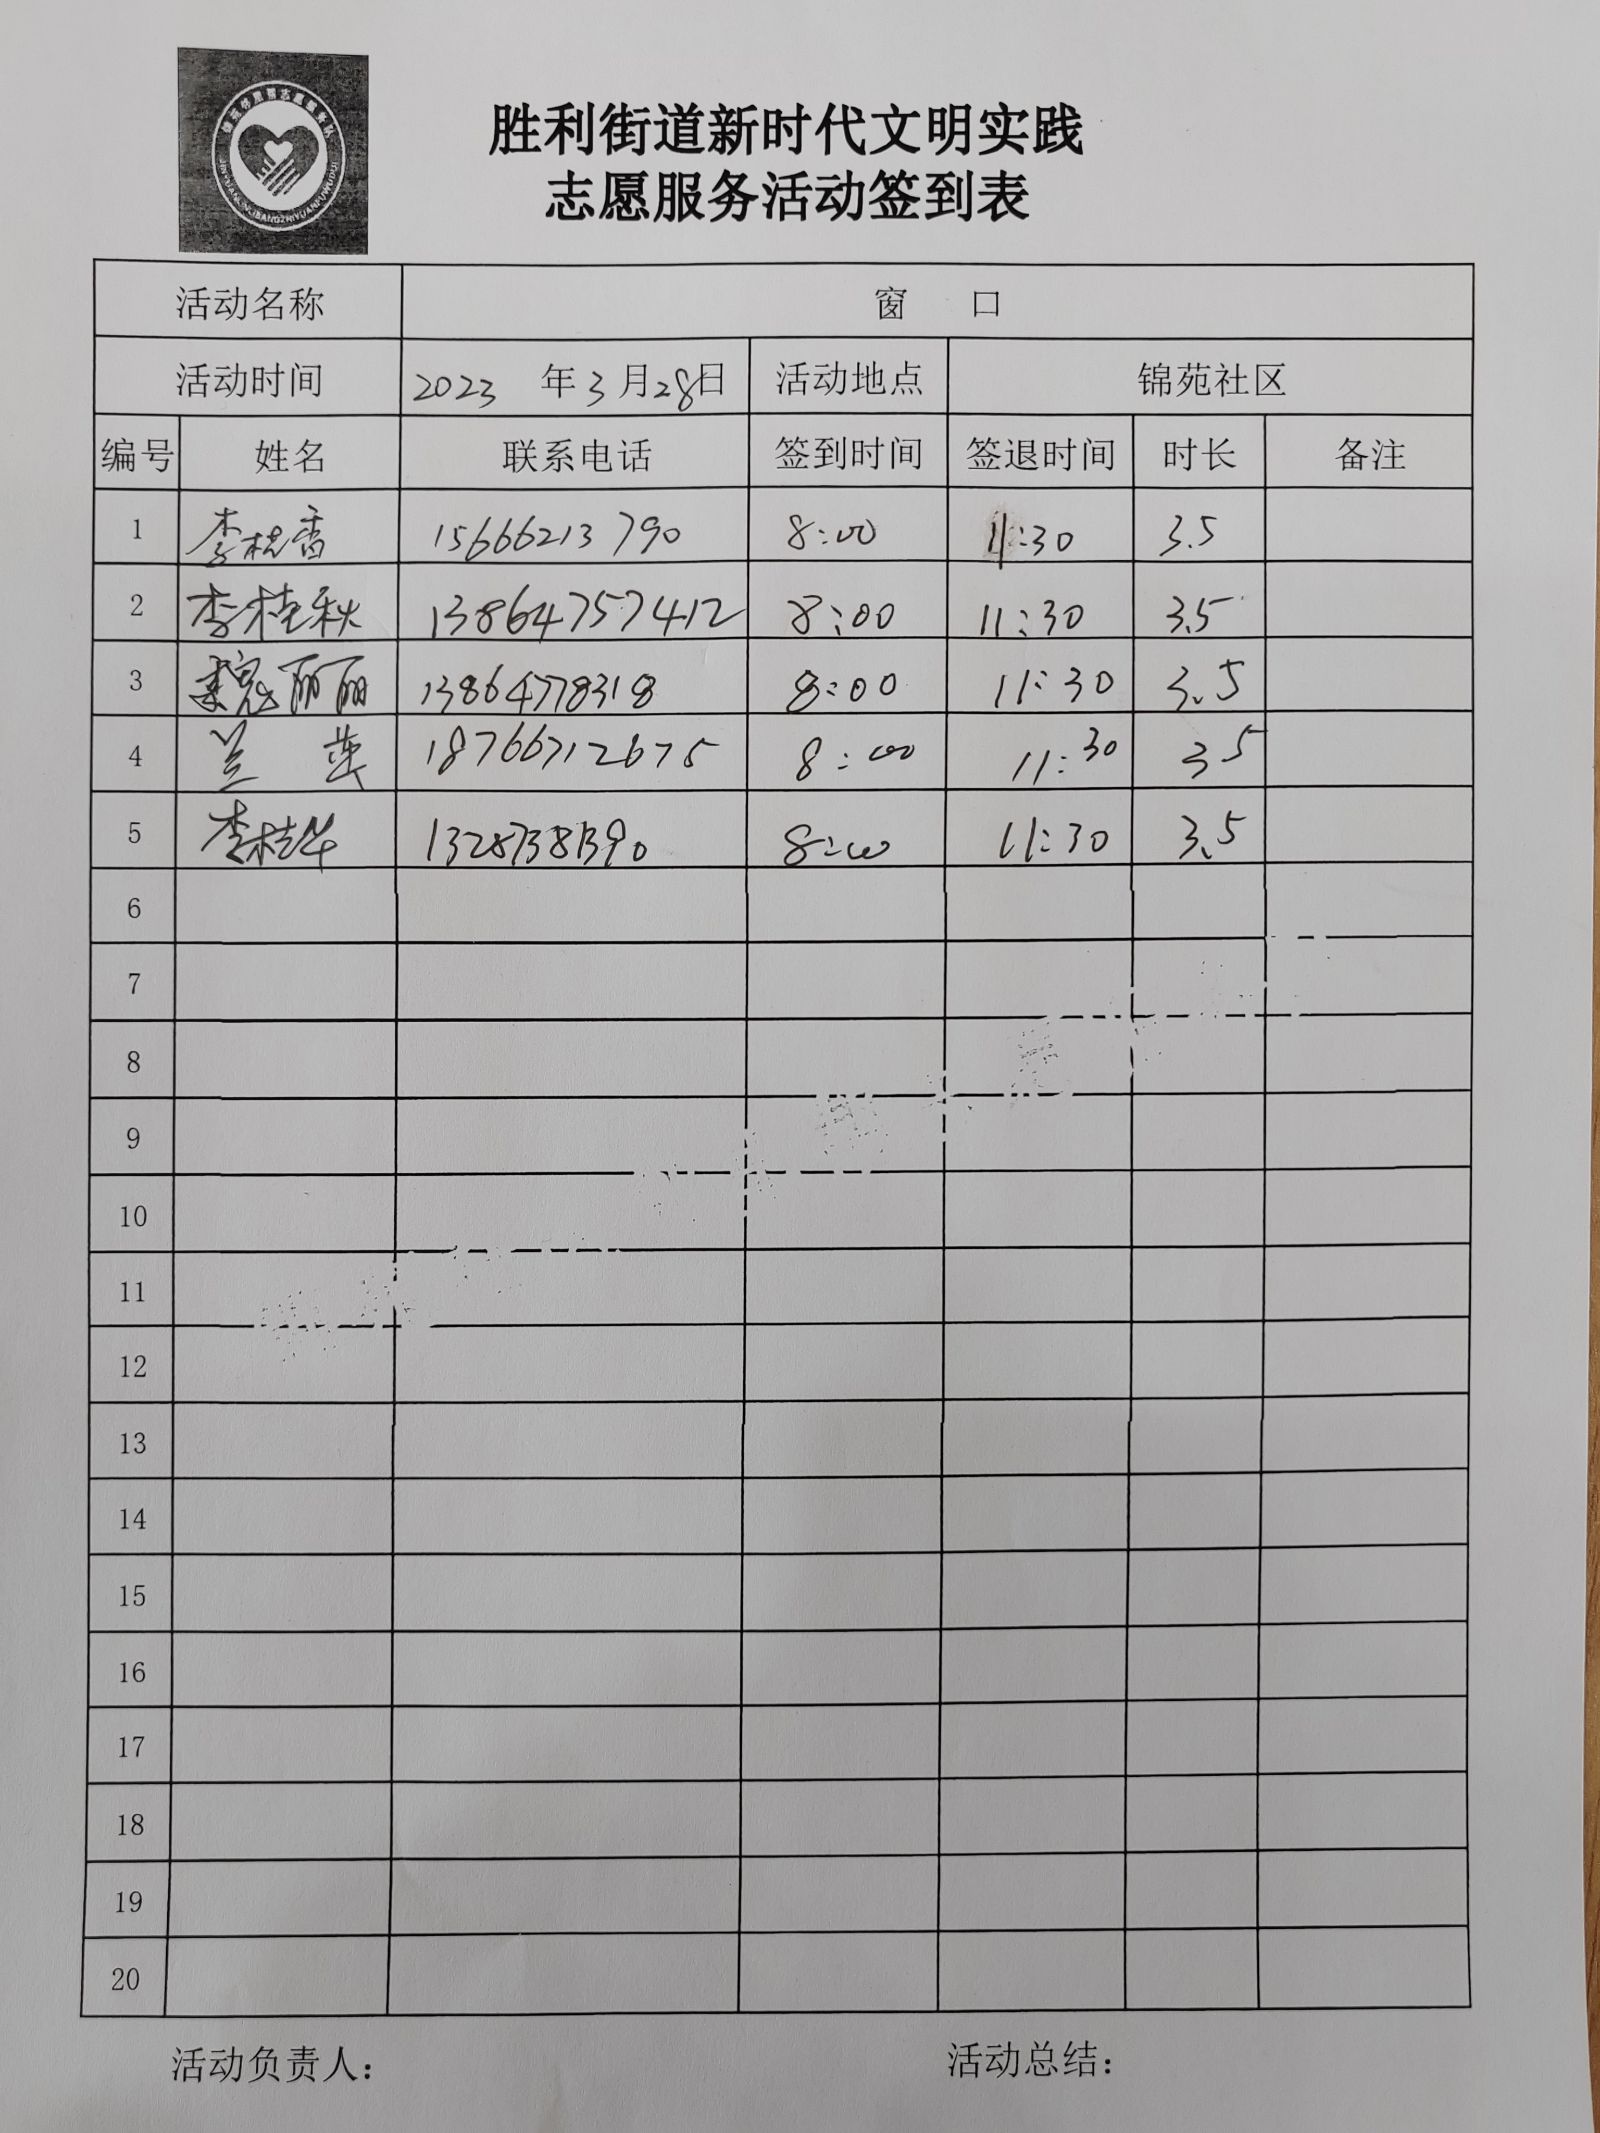 胜利街道新时代文明实践
志愿服务活动签到表
活动名称 窗 口
活动时间 2023 年3月28日 活动地点 锦苑社区
编号 姓名 联系电话 签到时间 签退时间 时长 备注
1 李桂香 15666213790 8:00 11:30 3.5
2 李桂秋 13864757412 8:00 11:30 3.5
3 丽丽 13864778318 8:00 11:30 3.5
4 兰 18766712675 8:00 11:30 3.5
5 李桂华 8:00 11:30 3.5
6
7
8
9
10
11
12
13
14
15
16
17
18
19
20
活动负责人： 活动总结：